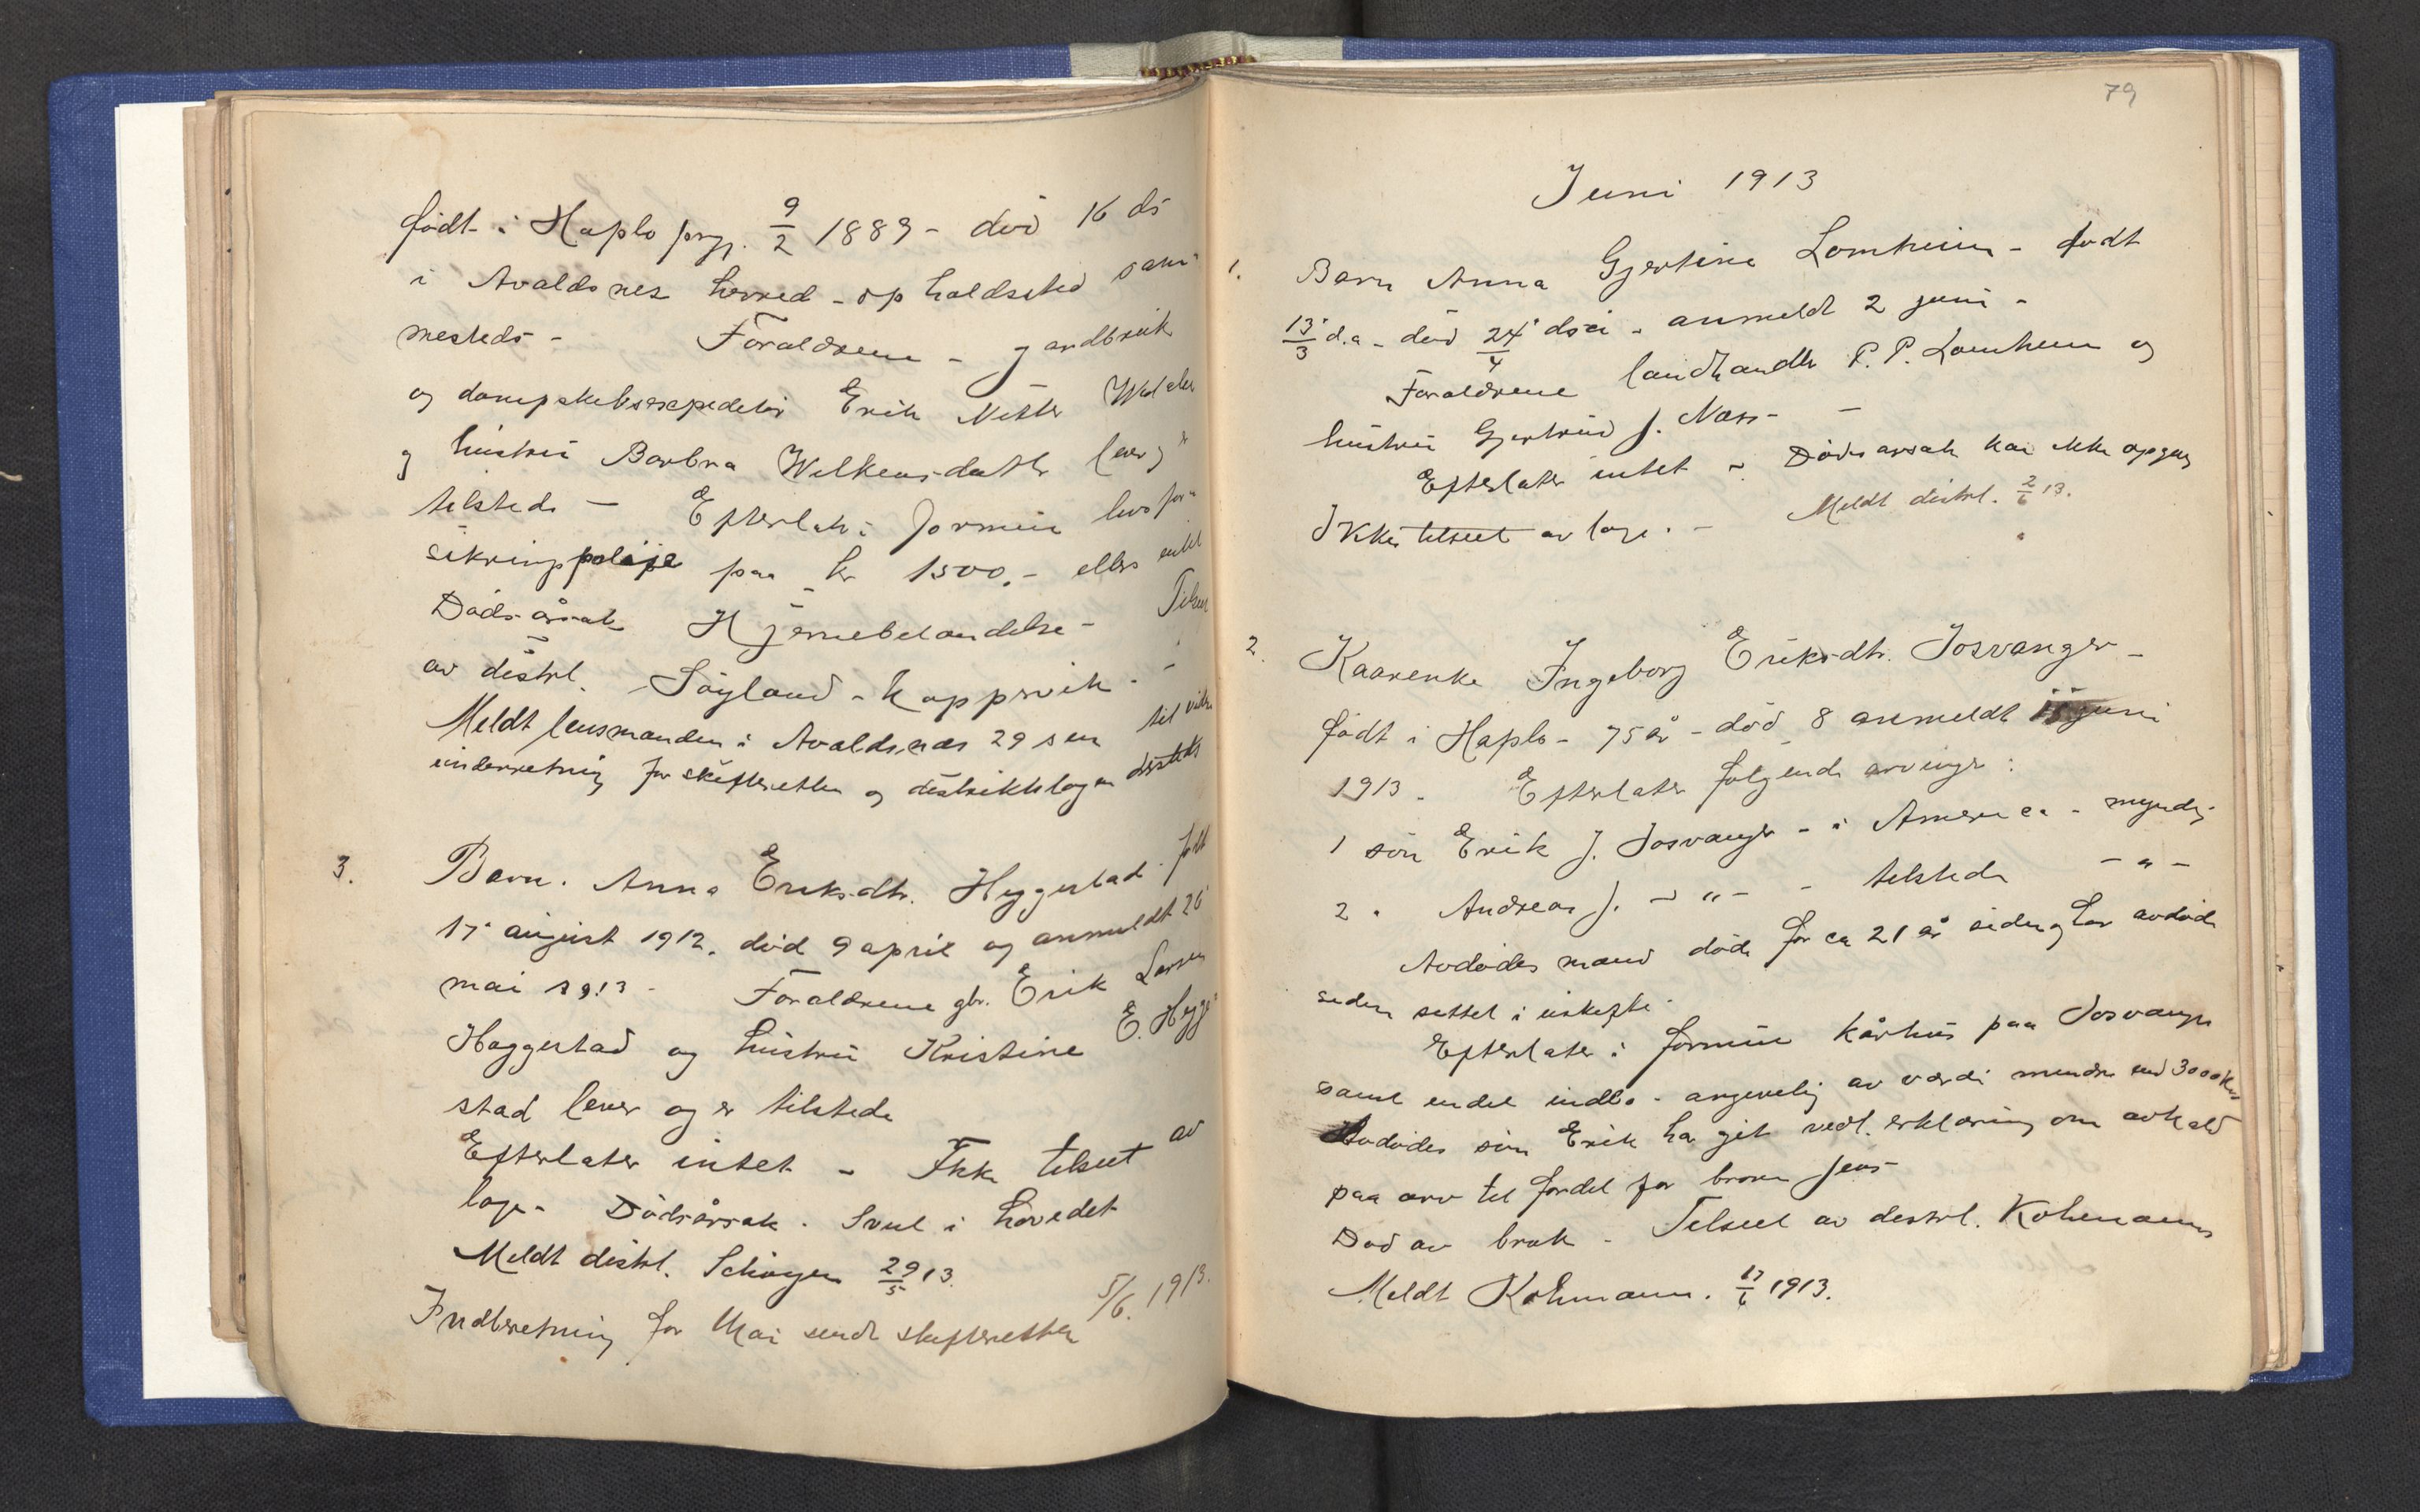 født i Haplo prgj. 9/2 1889 - død 16 ds
i Avaldsnes herred - opholdssted sam-
mesteds - Forældrene - gardbruk
og dampskibsexpeditør Erik
og hustru Barbra Wilkensdatter lever og er
tilstede - Efterlater i formue livsfor-
sikringpolise paa kr 1500.- ellers intet
Dødsårsak Hjernebetændelse - Tilseet
av distrl. Søyland - Koppervik -
Meldt lensmanden i Avaldsnes 29 sen til videre
underretning for skifteretten og distriktslægen dersteds
3. Barn. Anna Eriksdtr. Heggestad. født
17 august 1912. død 9 april og anmeldt 26
mai 1913 - Forældrene gbr. Erik Larsen
Heggestad og hustru Kristine E. Hegge-
stad lever og er tilstede
Efterlater intet - Ikke tilseet av
læge - Dødsårsak. Svul i hovedet
Meldt distrl. Schøyen 29/5 13.
Indberetning for Mai sendt skifteretten 5/6. 1913.
79
Juni 1913
1. Barn Anna Gjertine Lomheim - født
13/3 d.a - død 24/4 ds - anmeldt 2 juni -
Forældrene landhandler P. P. Lomheim og
hustru Gjertrud J. Næss -
Efterlater intet - Dødsarsak kan ikke opgives
Ikke tilseet av læge. - Meldt distrl. 2/6 13.
2. Kaarenke Ingeborg Eriksdtr. Josvanger -
født i Haplo - 75 år - død 8 anmeldt juni
1913. Efterlater følgende arvinger:
1 søn Erik J. Josvanger - i America - myndig
2 " Andreas J. - " - - tilstede - " -
Avdødes mand døde for ca 21 år siden og har avdøde
siden sittet i uskifte.
Efterlater i formue kårhus paa Josvanger
samt endel indbo - angivelig av værdi mindre end 3000 kr
Avdødes søn Erik ha git vedl. erklæring om avkald
paa arv til fordel for broren Jens -
Død av brok - Tilseet av distrl. Kohmann
Meldt Kohmann. 17/6 1913.